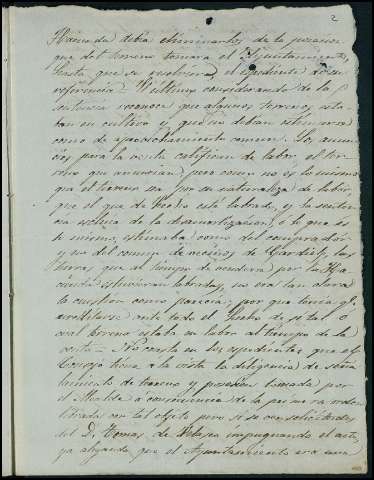 2
Hacienda debia eliminarlos de la posesion
que del terreno tomara el Ayuntamiento,
hasta que se resolviera el espediente de su
referencia. El ultimo considerando de la
sentencia reconoce que algunos terrenos esta-
ban en cultivo y que no debian estimarse
como de aprovechamiento comun. Los anun-
cios para la venta califican de labor, el ter-
reno que anuncian; pero como no es lo mismo
que el terreno sea por su naturaleza de labor,
que el que de hecho esté labrado, y la senten-
cia escluia de la desamortizacion, o lo que es
lo mismo, estimaba como del comprador
y no del comun de vecinos de las
tierras que al tiempo de venderse por la Ha-
cienda estuvieran labradas, no era tan clara
la cuestion como parecia; por que tenia que
acreditarse ante todo el hecho de si tal o
cual terreno estaba en labor al tiempo de la
venta = No consta en los espedientes que el
Consejo tiene a la vista la diligencia de seña-
lamiento de terreno y posesion tomada por
el Alcalde a consecuencia de la primera orden
librada con tal objeto pero si se con solicitudes
del D. Tomas de Velasco impugnando el acto,
ya alegando que el Ayuntamiento era una